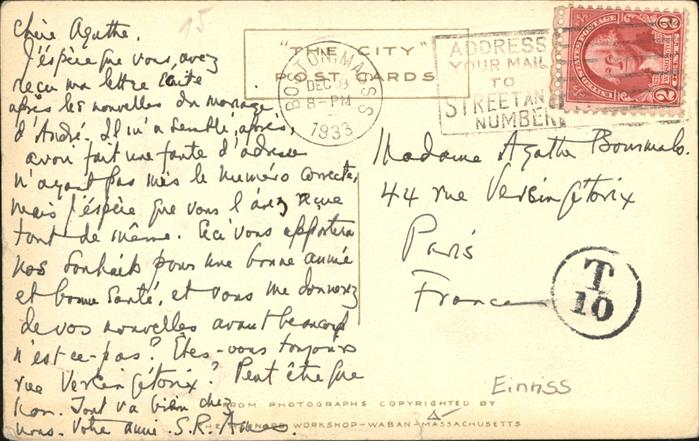 15
Chère Agathe.
J'espère que vous avez
reçu ma lettre écrite
après les nouvelles du mariage
d'André. Il m'a semblé, après,
avoir fait une faute d'adresse
n'ayant pas mis le numéro correcte,
mais j'espère que vous l'avez reçue
tout de même. Ceci vous apportera
nos souhaits pour une bonne année
et bonne santé, et vous me donnerez
de vos nouvelles avant beaucoup
n'est-ce-pas? Etes-vous toujours
rue Vercingétorix? Peut être que
non. Tout va bien chez
nous. Votre amie. S.R.
"THE CITY"
POST CARDS
BOSTON, MASS
DEC
8-PM
1933
ADDRESS
YOUR MAIL
TO
STREET AND
NUMBER
UNITED STATES POSTAGE
2 2
Madame Agathe
44 rue Vercingétorix
Paris
France
T
10
Einriss
FROM PHOTOGRAPHS COPYRIGHTED BY
WORKSHOP-WABAN-MASSACHUSETTS